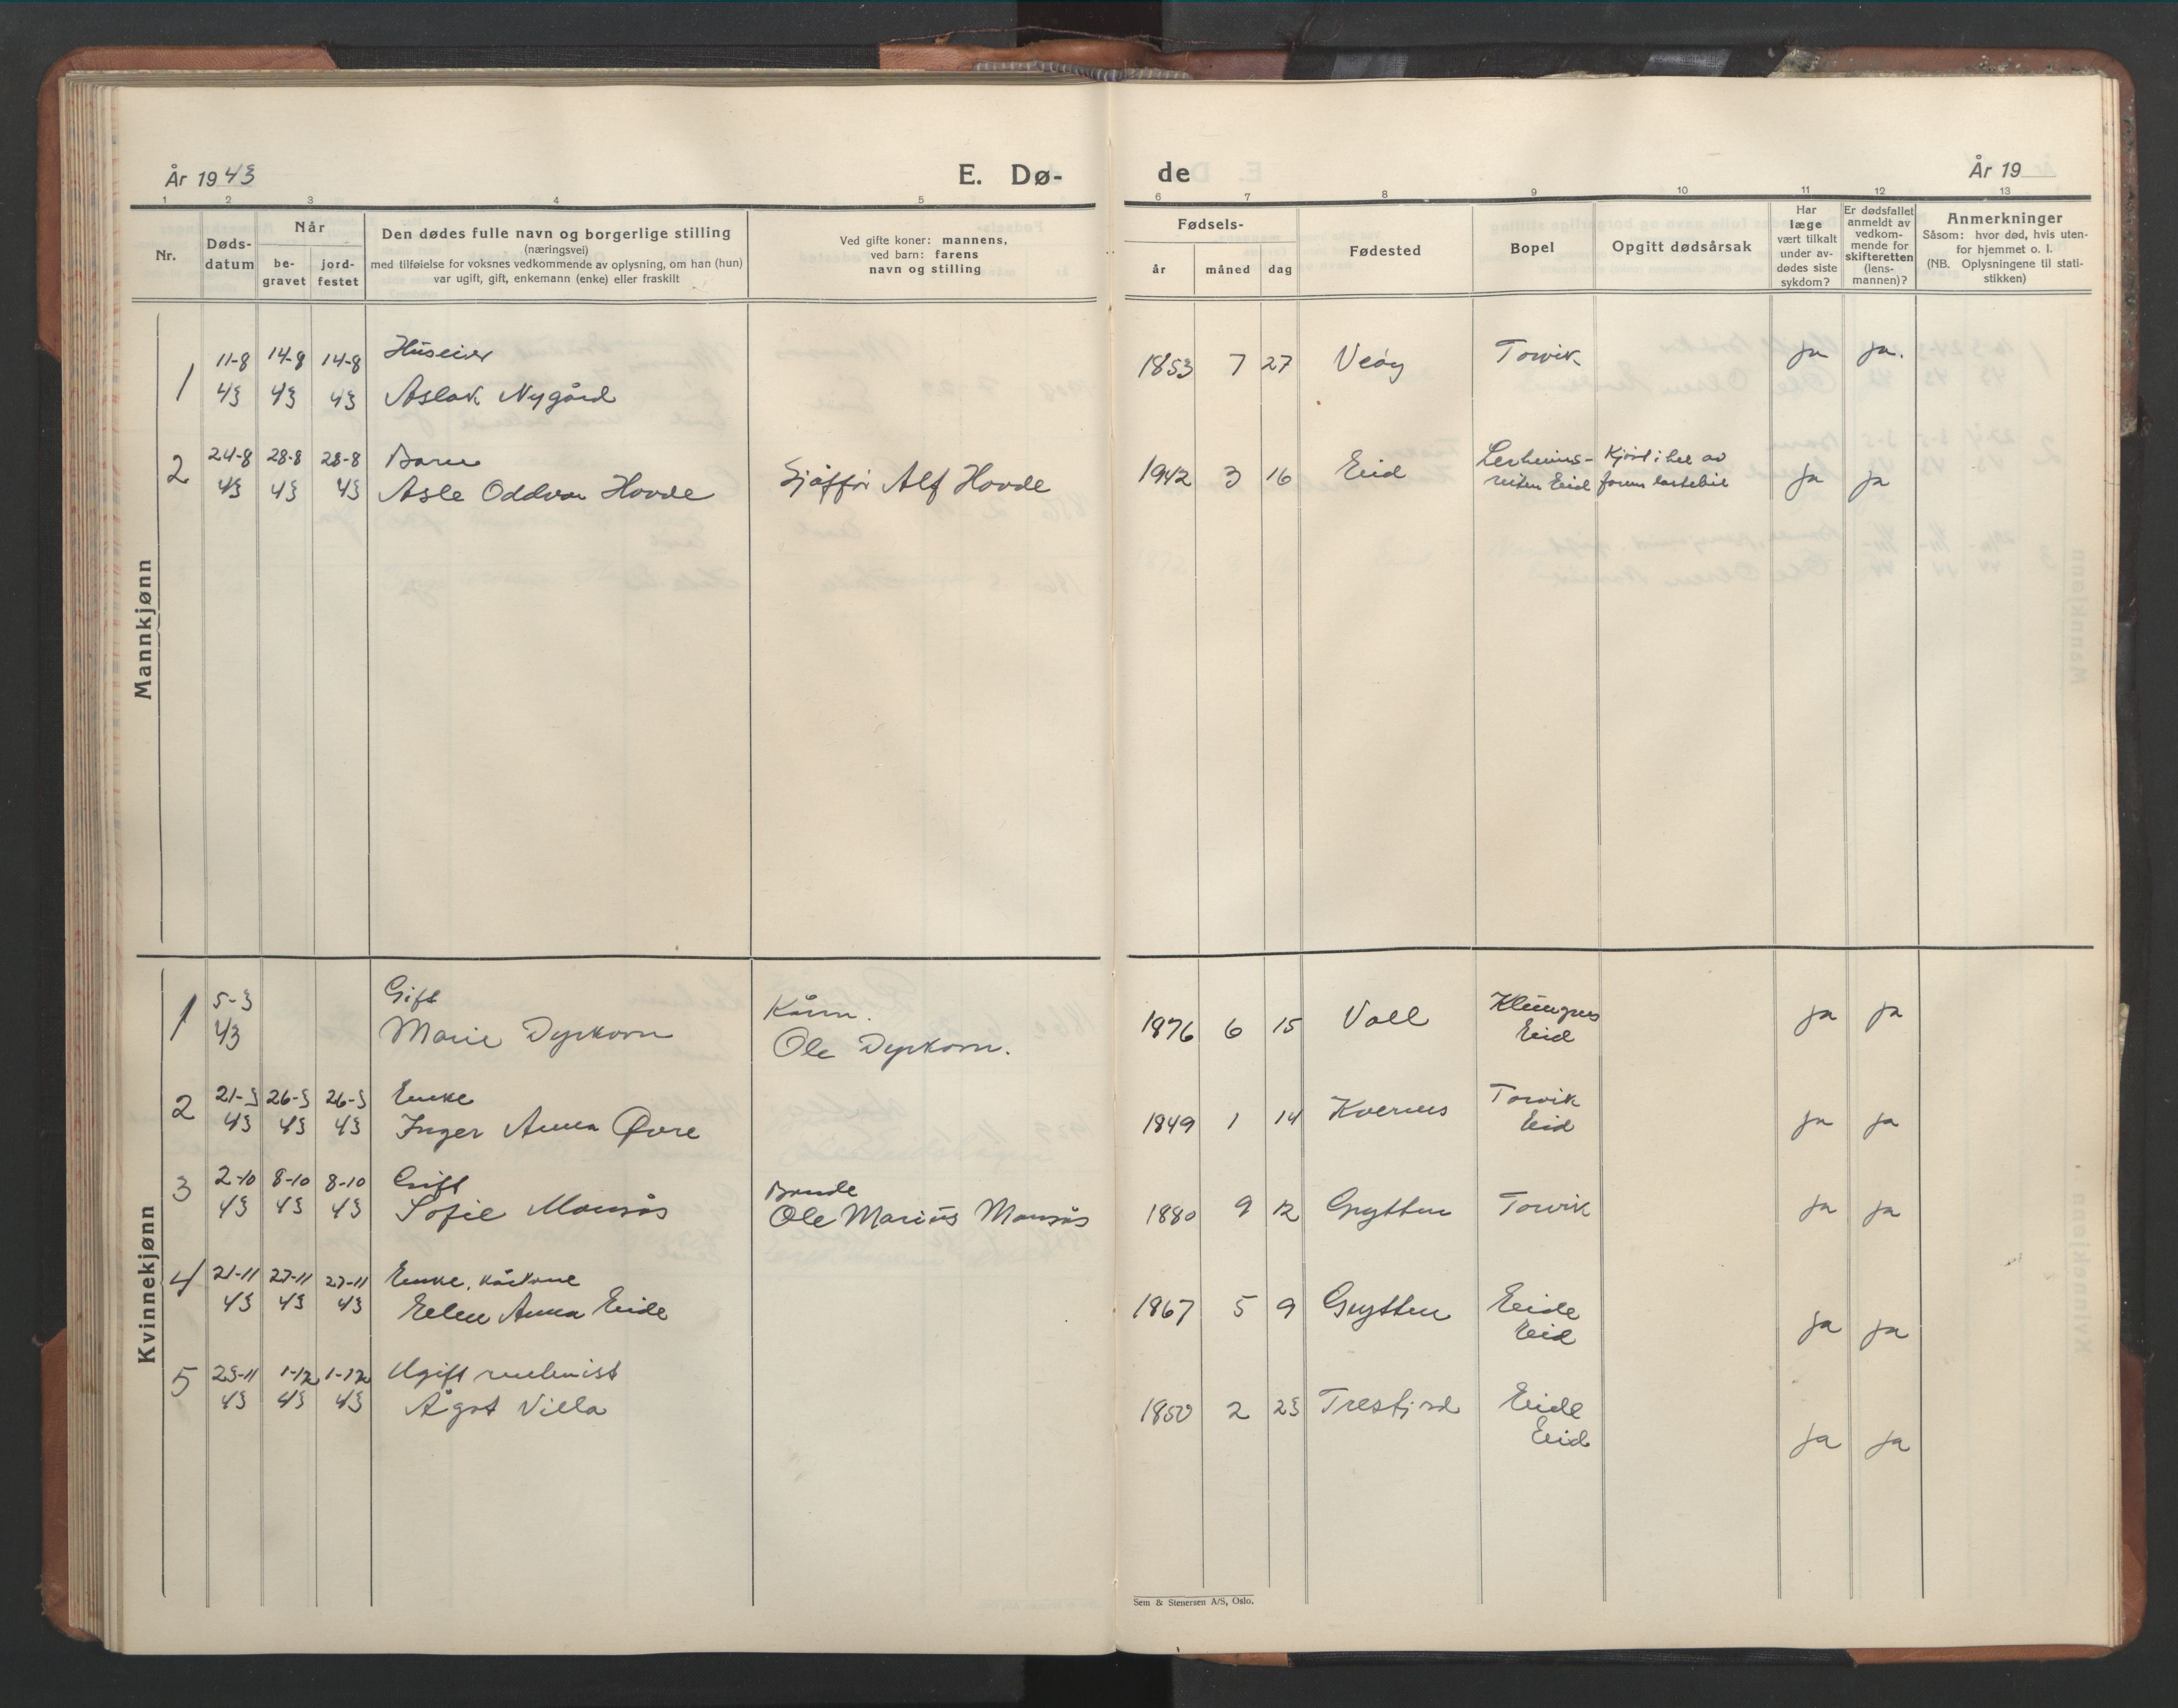 År 1943
E. Dø-
de
År 19
1 2 3 4 5
6 7 8 9 10 11 12 13
Nr.
Døds-
datum
Når
be-
gravet
jord-
festet
Den dødes fulle navn og borgerlige stilling
(næringsvei)
med tilføielse for voksnes vedkommende av oplysning, om han (hun)
var ugift, gift, enkemann (enke) eller fraskilt
Ved gifte koner: mannens,
ved barn: farens
navn og stilling
Fødsels-
år måned dag
Fødested
Bopel
Opgitt dødsårsak
Har
læge
vært tilkalt
under av-
dødes siste
sykdom?
Er dødsfallet
anmeldt av
vedkom-
mende for
skifteretten
(lens-
mannen)?
Anmerkninger
Såsom: hvor død, hvis uten-
for hjemmet o. l.
(NB. Oplysningene til stati-
stikken)
Mannkjønn
1 11-8 14-8 14-8 Huseier
43 43 43 Aslak Nygård
1853 7 27 Veøy Torvik ja ja.
2 24-8 28-8 28-8 Barn
43 43 43 Asle Oddvar Hovde Sjåffør Alf Hovde
1942 3 16 Eid Lerheims- Kjørt i hel av
reiten Eid lastebil ja ja
Kvinnekjønn
1 5-3 Gift Kårm.
43 Marie Dyrkorn Ole Dyrkorn.
1876 6 15 Voll Klungnes
Eid ja ja
2 21-3 26-3 26-3 Enke
43 43 43 Inger Anna Øvre
1849 1 14 Kvernes Torvik
Eid ja ja
3 2-10 8-10 8-10 Gift Bonde
43 43 43 Sofie Monsås Ole Marius Monsås
1880 9 12 Grytten Torvik ja ja
4 21-11 27-11 27-11 Enke, kårkone
43 43 43 Ellen Anna Eide
1867 5 9 Grytten Eide
Eid ja ja
5 23-11 1-12 1-12 Ugift
43 43 43 Ågot Villa
1850 2 23 Tresfjord Eide
Eid ja ja
Sem & Stenersen A/S, Oslo.